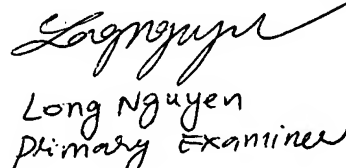 Longnguyen
Long Nguyen
Primary Examiner